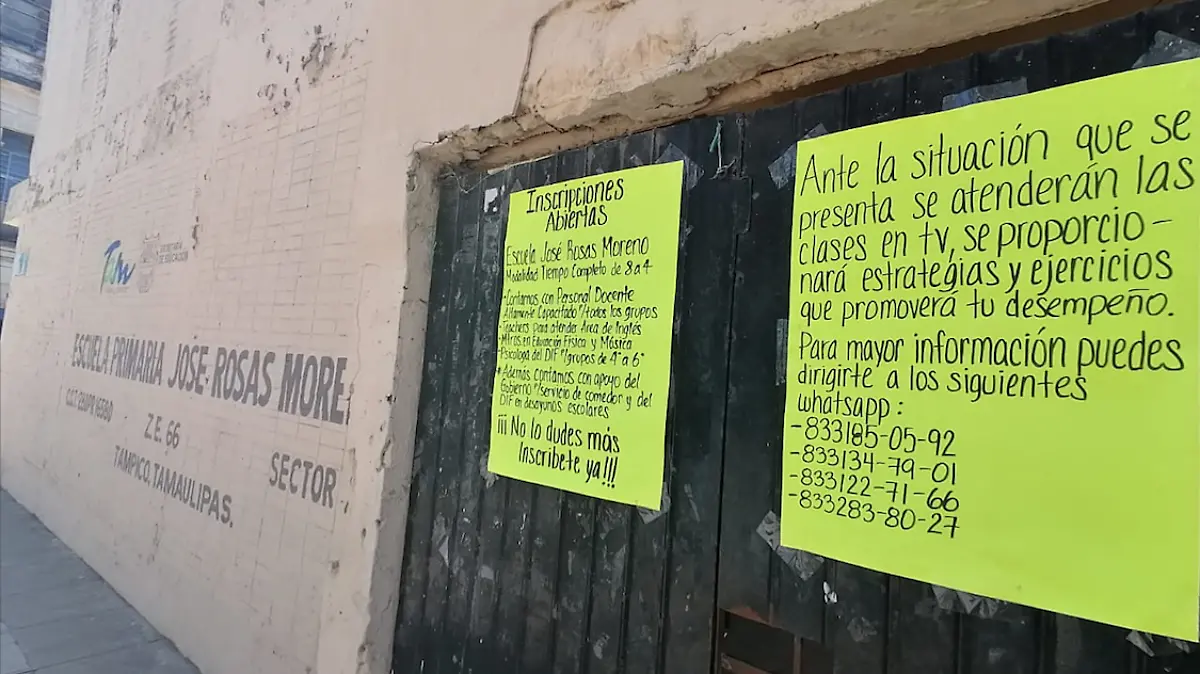 Tam
SECRETARÍA
DE EDUCACIÓN
ESCUELA PRIMARIA JOSÉ ROSAS MORE
C.C.T.
Z.E. 66
SECTOR
TAMPICO, TAMAULIPAS.
Inscripciones
Abiertas
Escuela José Rosas Moreno
Modalidad Tiempo Completo de 8 a 4
-Contamos con Personal Docente
Altamente Capacitado °/todos los grupos
-Teachers para atender Area de Inglés
-Mtros en Educación Física y Música
-Psicologa del DIF °/grupos de 4° a 6°
*Además contamos con apoyo del
Gobierno °/servicio de comedor y del
DIF en desayunos escolares
¡¡¡ No lo dudes más
Inscríbete ya!!!
Ante la situación que se
presenta se atenderán las
clases en tv, se proporcio-
nará estrategias y ejercicios
que promoverá tu desempeño.
Para mayor información puedes
dirigirte a los siguientes
whatsapp:
-833185-05-92
-833134-79-01
-833122-71-66
-833283-80-27